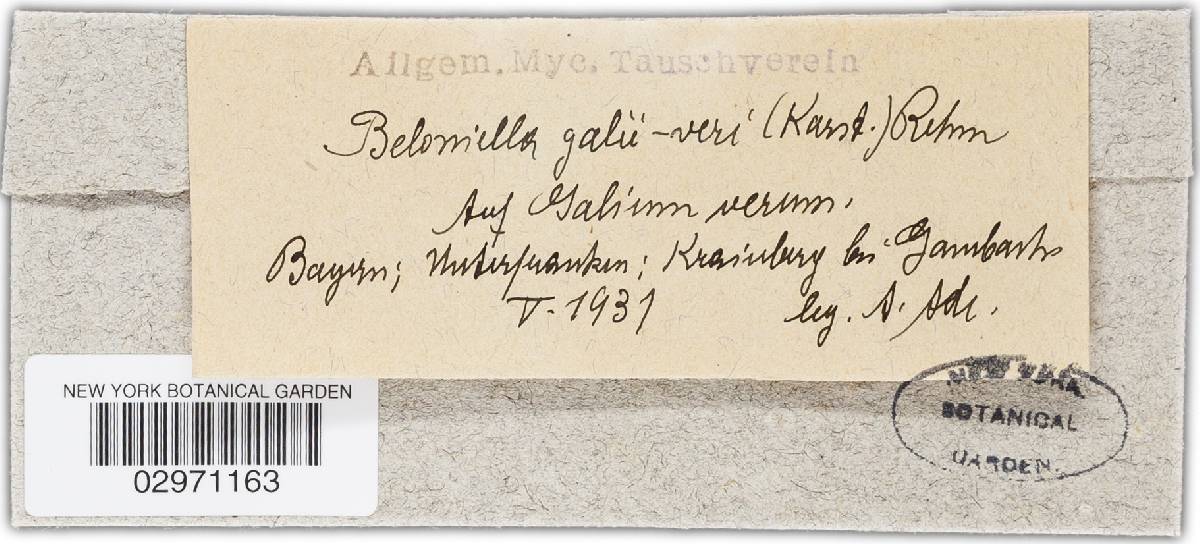 Allgem. Myc. Tauschverein
Beloniella galii-veri (Karst.) Rehm
Auf Galium verum.
Bayern; Unterfranken; Krainberg bei Gambach
V. 1931 leg. A. Ade.
NEW YORK BOTANICAL GARDEN
02971163
NEW YORK
BOTANICAL
GARDEN.